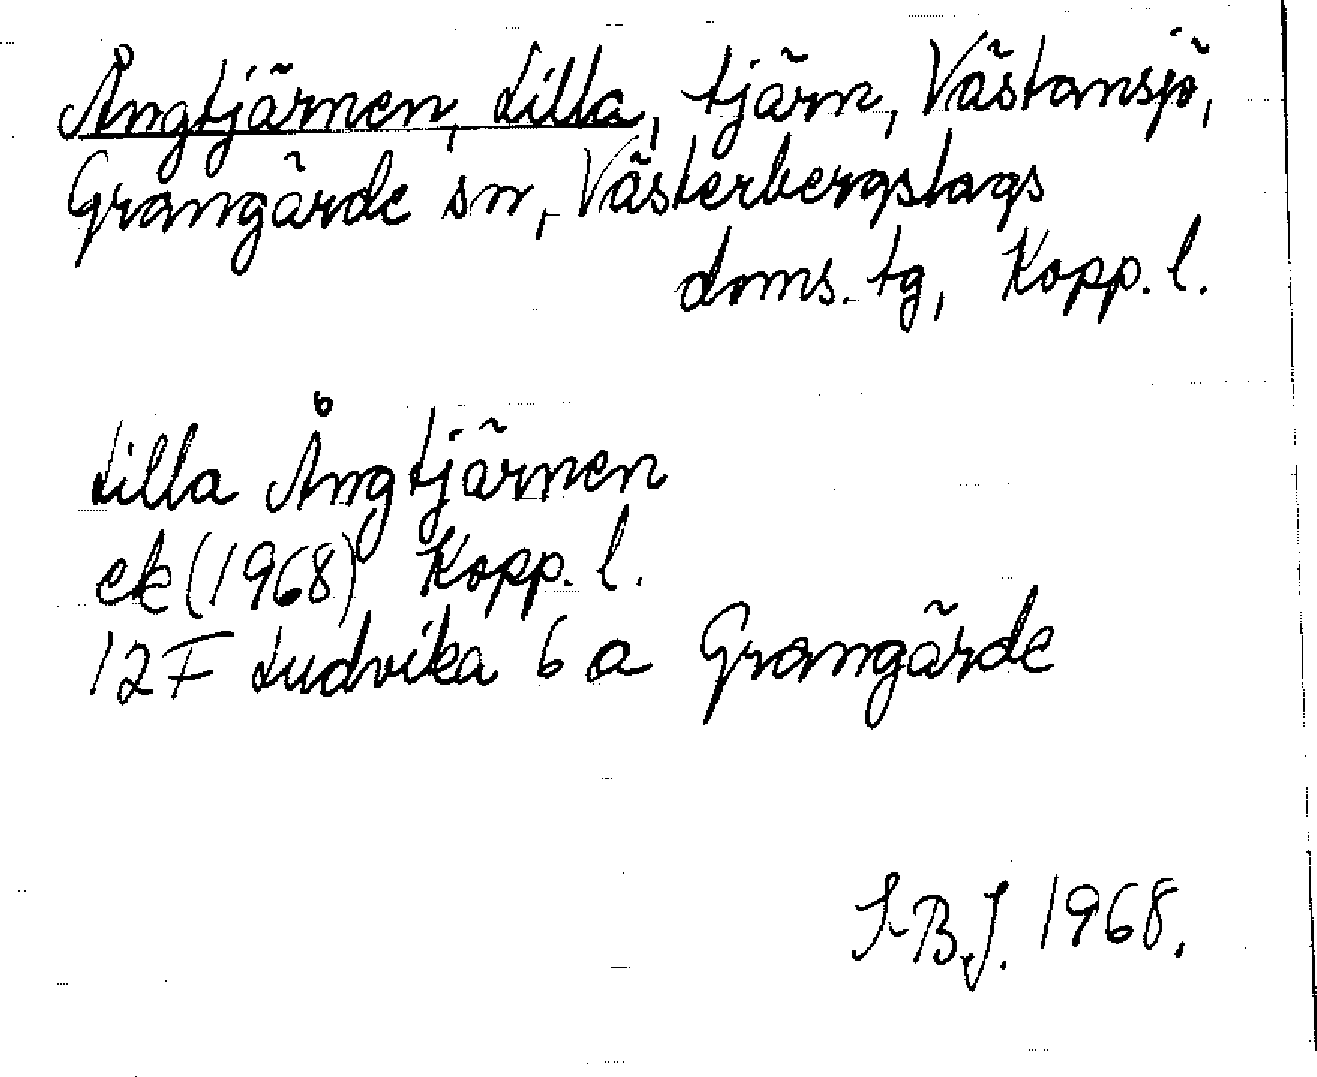 Ångtjärnen, Lilla, tjärn, Västansjö,
Grangärde sn, Västerbergslags
doms. tg, Kopp. l.
Lilla Ångtjärnen
ek (1968) Kopp. l.
12 F Ludvika 6 a Grangärde
S-B.J. 1968.